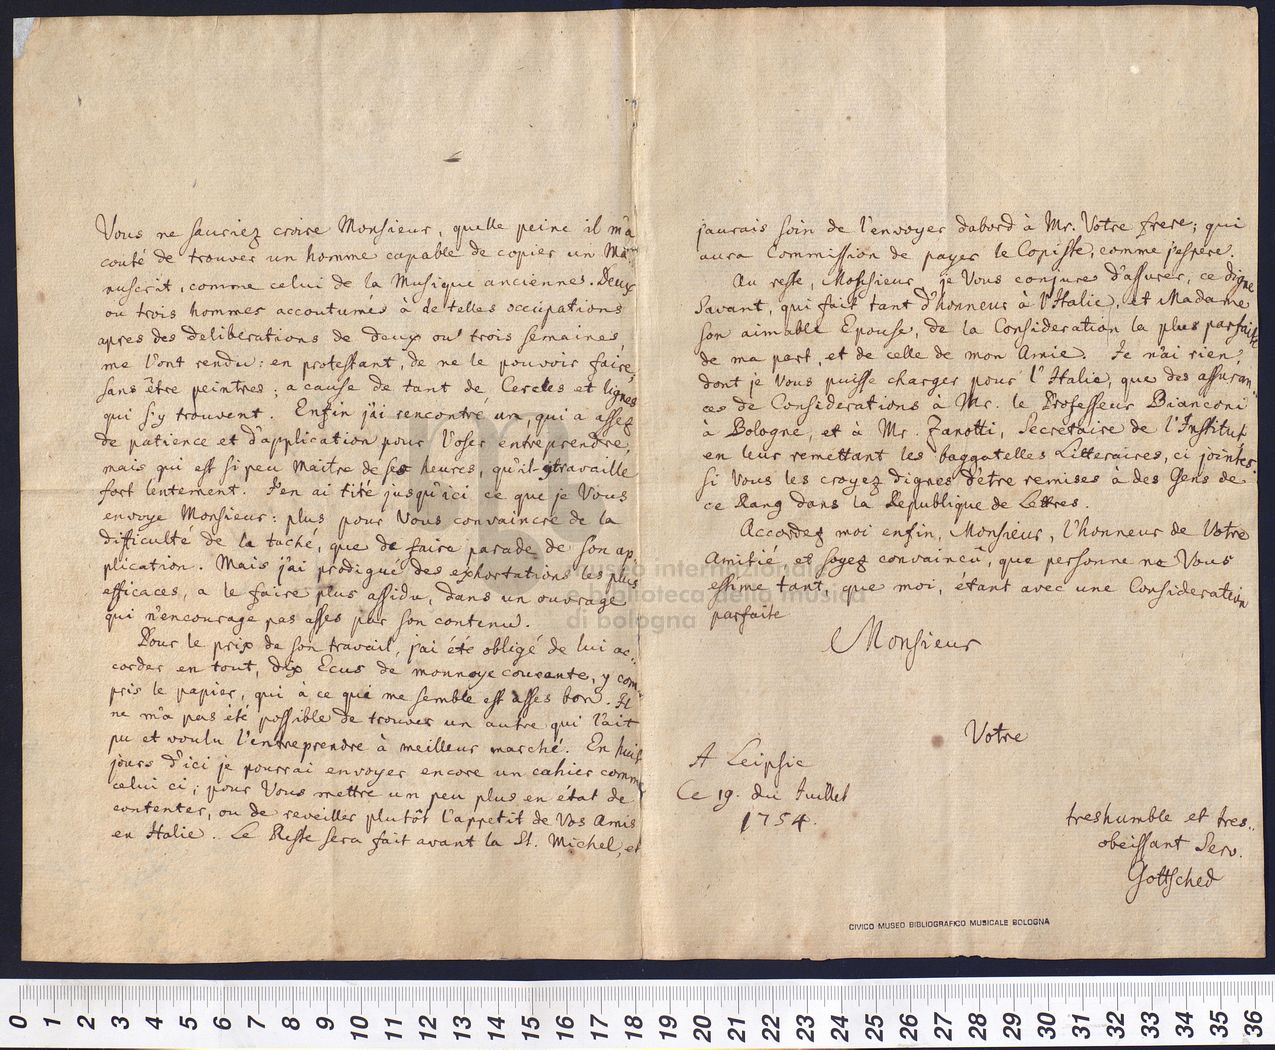 Vous ne sauriez croire Monsieur, quelle peine il m'a
couté de trouver un homme capable de copier un Ma
nuscrit, comme celui de la Musique anciennes. Deux
ou trois hommes accoutumés à de telles occupations
apres des deliberations de deux ou trois semaines,
me l'ont rendu: en protestant, de ne le pouvoir faire,
sans être peintres; a cause de tant de Cercles et lignes
qui s'y trouvent. Enfin j'ai rencontré un, qui a assez
de patience et d'application pour l'oser entreprendre,
mais qui est si peu Maitre de ses heures, qu'il y travaille
fort lentement. J'en ai tité jusqu'ici ce que je Vous
envoye Monsieur: plus pour Vous convaincre de la
difficulté de la taché, que de faire parade de son ap
plication. Mais j'ai prodigué des exhortations les plus
efficaces, a le faire plus assidu, dans un ouvrage
qui n'encourage pas asses par son contenu.
Pour le prix de son travail, j'ai été obligé de lui ac-
corder en tout, dix Ecus de monnoye courante, y com-
pris le papier, qui à ce que me semble est asses bon. Il
ne m'a pas été possible de trouver un autre qui l'ait
pu et voulu l'entreprendre à meilleur marché. En huit
jours d'ici je pourrai envoyer encore un cahier comme
celui ci; pour Vous mettre un peu plus en état de
contenter, ou de reveiller plutôt l'appetit de Vos Amis
en Italie. Le Reste sera fait avant la St. Michel, et
jaurais soin de l'envoyer dabord à Mr. Votre frere; qui
aura Commission de payer le Copiste, comme j'espere.
Au reste, Monsieur, je Vous conjure d'assurer, ce digne
Savant, qui fait tant d'honneur à l'Italie, et Madame
son aimable Epouse, de la Consideration la plus parfaite
de ma part, et de celle de mon Amie. Je n'ai rien,
dont je Vous puisse charger pour l'Italie, que des assuran-
ces de Considerations à Mr. le Professeur Bianconi
à Bologne, et à Mr. Zanotti, Secretaire de l'Institut
en leur remettant les baggatelles Litteraires, ci jointes.
si Vous les croyez dignes d'être remises à des Gens de
ce Rang dans la Republique de Lettres.
Accordez moi enfin, Monsieur, l'honneur de Votre
Amitié et soyez convaincû, que personne ne Vous
estime tant, que moi, étant avec une Consideration
parfaite
Monsieur
Votre
A Leipsic
Ce 19. du Juillet
1754.
treshumble et tres-
obeissant Serv.
Gottsched
CIVICO MUSEO BIBLIOGRAFICO MUSICALE BOLOGNA
museo internazionale
e biblioteca della musica
di bologna
0 1 2 3 4 5 6 7 8 9 10 11 12 13 14 15 16 17 18 19 20 21 22 23 24 25 26 27 28 29 30 31 32 33 34 35 36